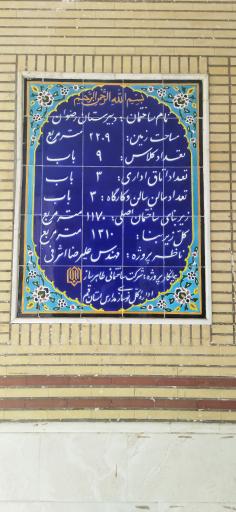 بسم الله الرحمن الرحیم
نام ساختمان : دبیرستان رضوان
مساحت زمین : ۲۲۰۹ متر مربع
تعداد کلاس : ۹ باب
تعداد اتاق اداری : ۳ باب
تعداد سالن و کارگاه : ۳ باب
زیربنای ساختمان اصلی : ۱۱۷۰ متر مربع
کل زیربنا : ۱۲۱۰ متر مربع
ناظر پروژه : مهندس علیرضا اشرفی
پیمانکار پروژه : شرکت ساختمانی طاهر ساز
اداره کل نوسازی مدارس استان قم